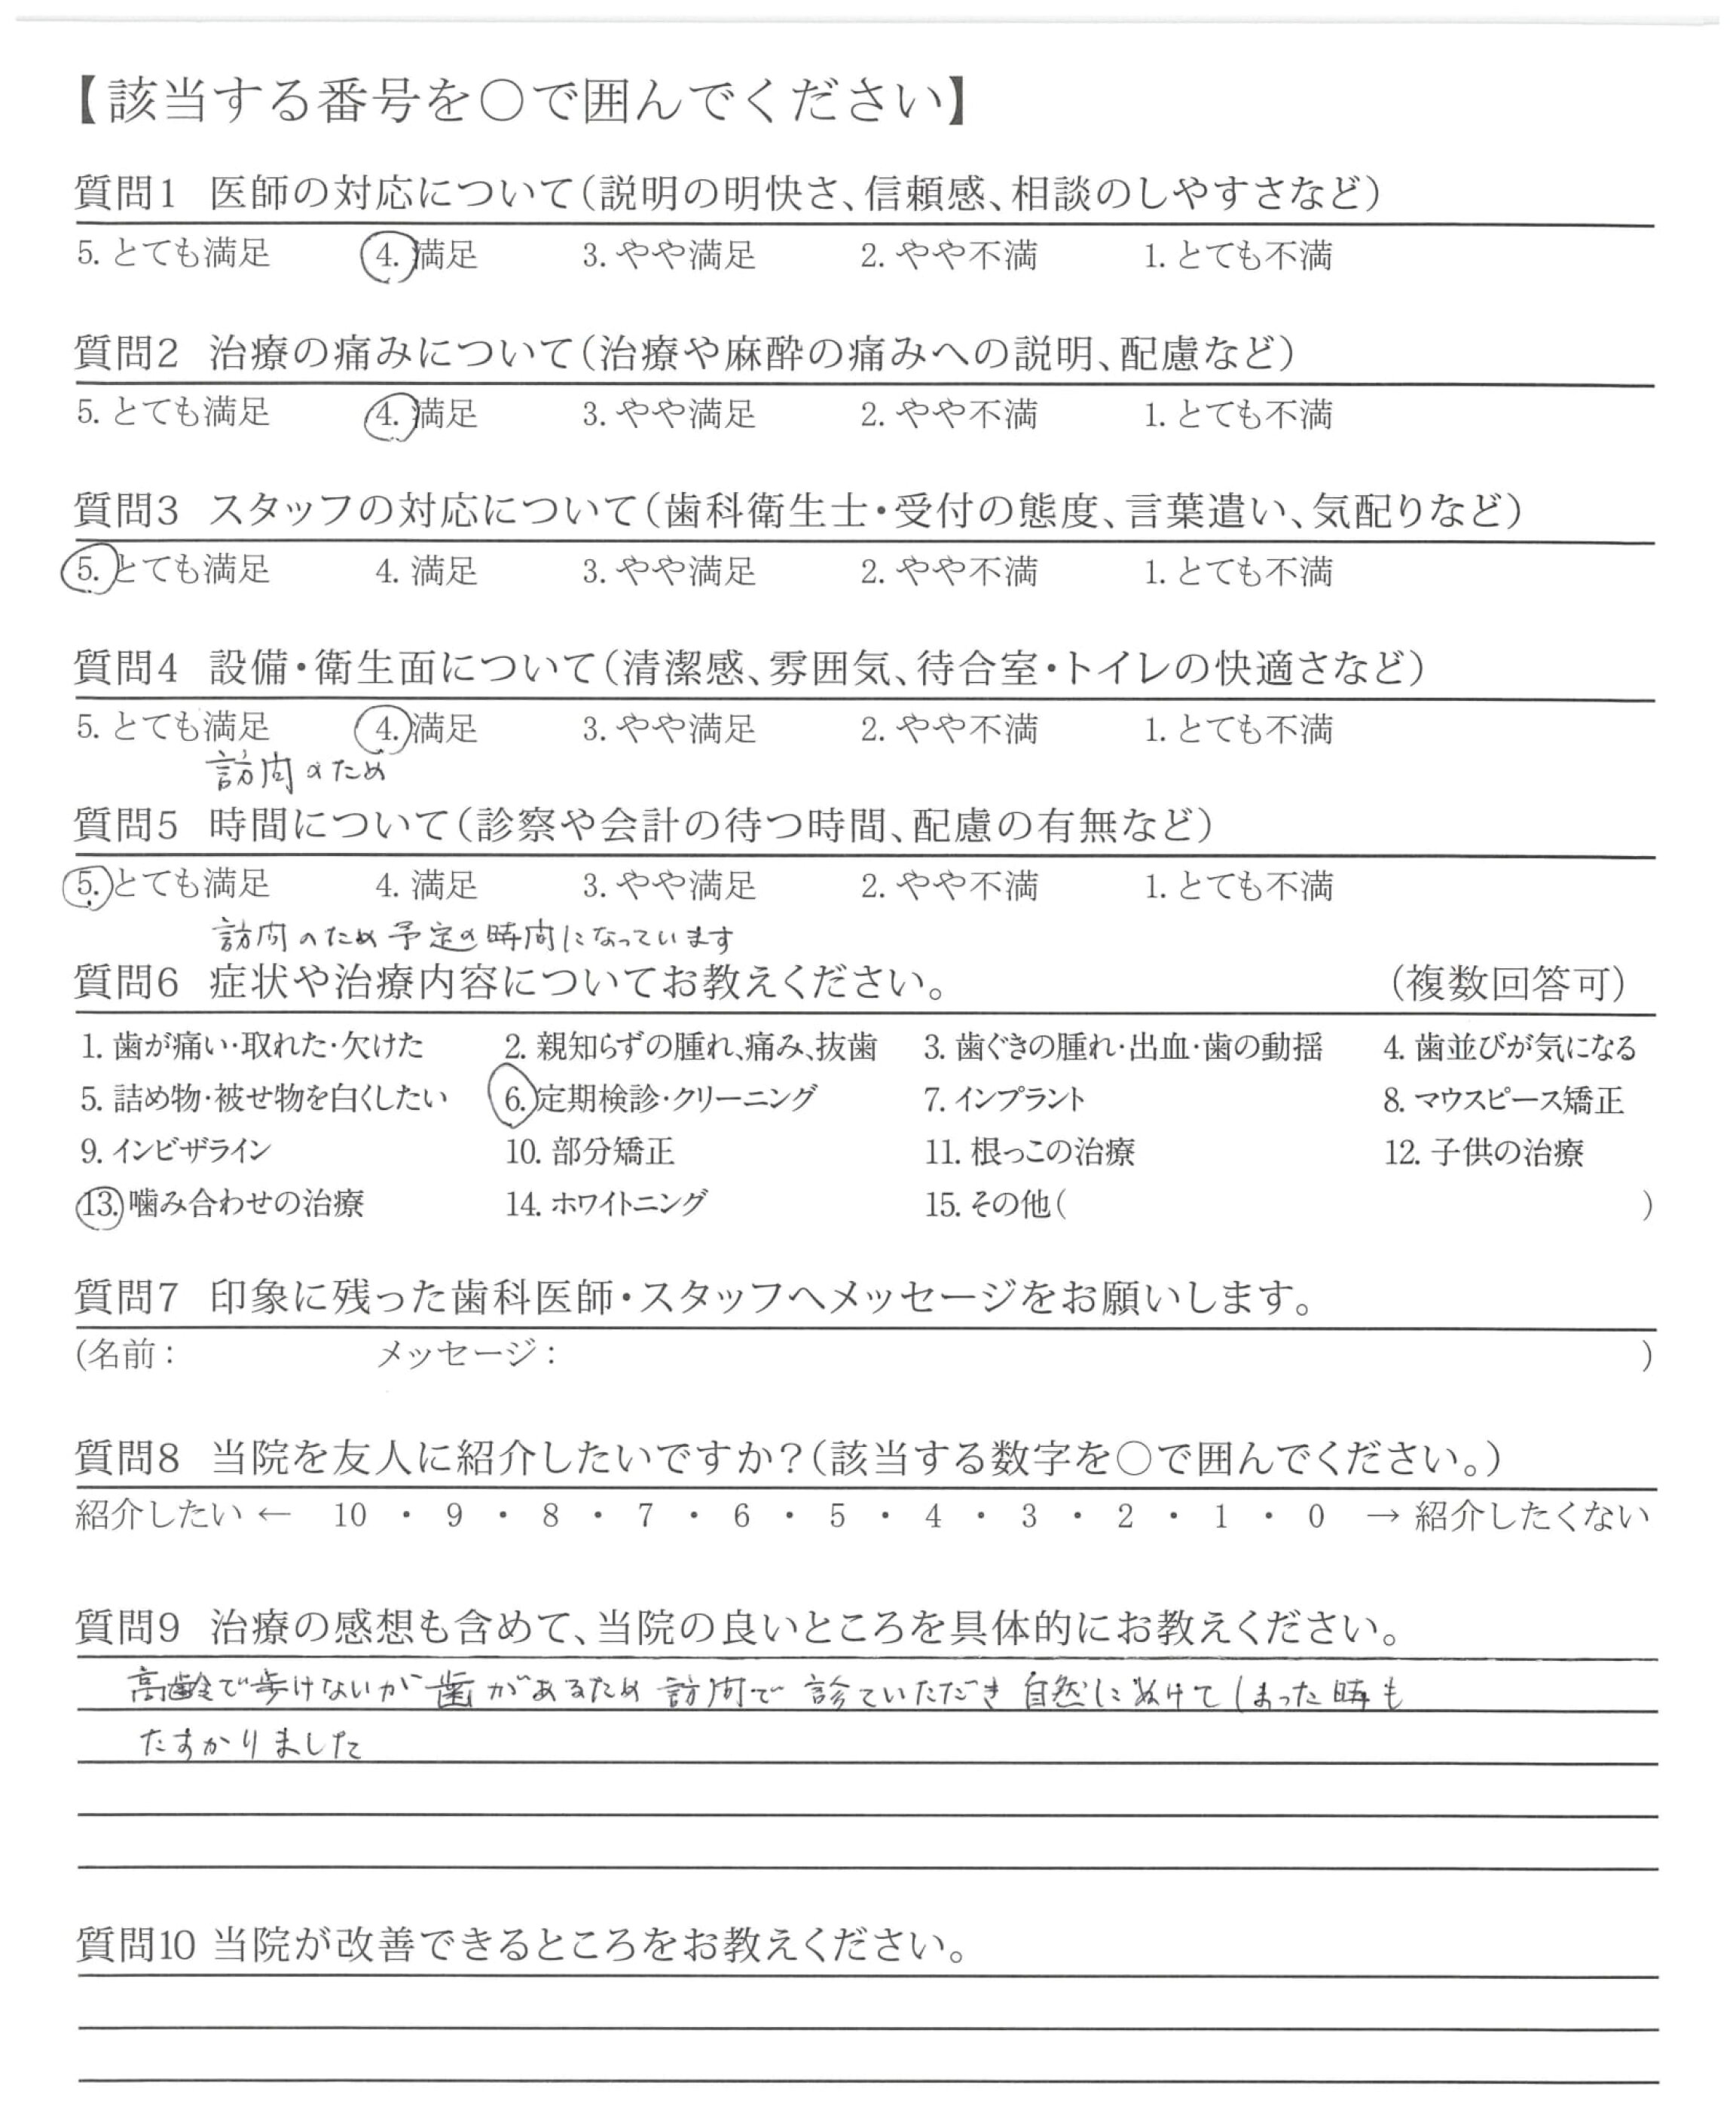 【該当する番号を○で囲んでください】
質問1 医師の対応について(説明の明快さ、信頼感、相談のしやすさなど)
5. とても満足 4. 満足 3. やや満足 2. やや不満 1. とても不満
質問2 治療の痛みについて(治療や麻酔の痛みへの説明、配慮など)
5. とても満足 4. 満足 3. やや満足 2. やや不満 1. とても不満
質問3 スタッフの対応について(歯科衛生士・受付の態度、言葉遣い、気配りなど)
5. とても満足 4. 満足 3. やや満足 2. やや不満 1. とても不満
質問4 設備・衛生面について(清潔感、雰囲気、待合室・トイレの快適さなど)
5. とても満足 4. 満足 3. やや満足 2. やや不満 1. とても不満
訪問のため
質問5 時間について(診察や会計の待つ時間、配慮の有無など)
5. とても満足 4. 満足 3. やや満足 2. やや不満 1. とても不満
訪問のため予定の時間になっています
質問6 症状や治療内容についてお教えください。 (複数回答可)
1. 歯が痛い・取れた・欠けた 2. 親知らずの腫れ、痛み、抜歯 3. 歯ぐきの腫れ・出血・歯の動揺 4. 歯並びが気になる
5. 詰め物・被せ物を白くしたい 6. 定期検診・クリーニング 7. インプラント 8. マウスピース矯正
9. インビザライン 10. 部分矯正 11. 根っこの治療 12. 子供の治療
13. 噛み合わせの治療 14. ホワイトニング 15. その他( )
質問7 印象に残った歯科医師・スタッフへメッセージをお願いします。
(名前: メッセージ: )
質問8 当院を友人に紹介したいですか?(該当する数字を○で囲んでください。)
紹介したい ← 10 ・ 9 ・ 8 ・ 7 ・ 6 ・ 5 ・ 4 ・ 3 ・ 2 ・ 1 ・ 0 → 紹介したくない
質問9 治療の感想も含めて、当院の良いところを具体的にお教えください。
高齢で歩けないが歯があるため訪問で診ていただき自然にぬけてしまった時も
たすかりました
質問10 当院が改善できるところをお教えください。